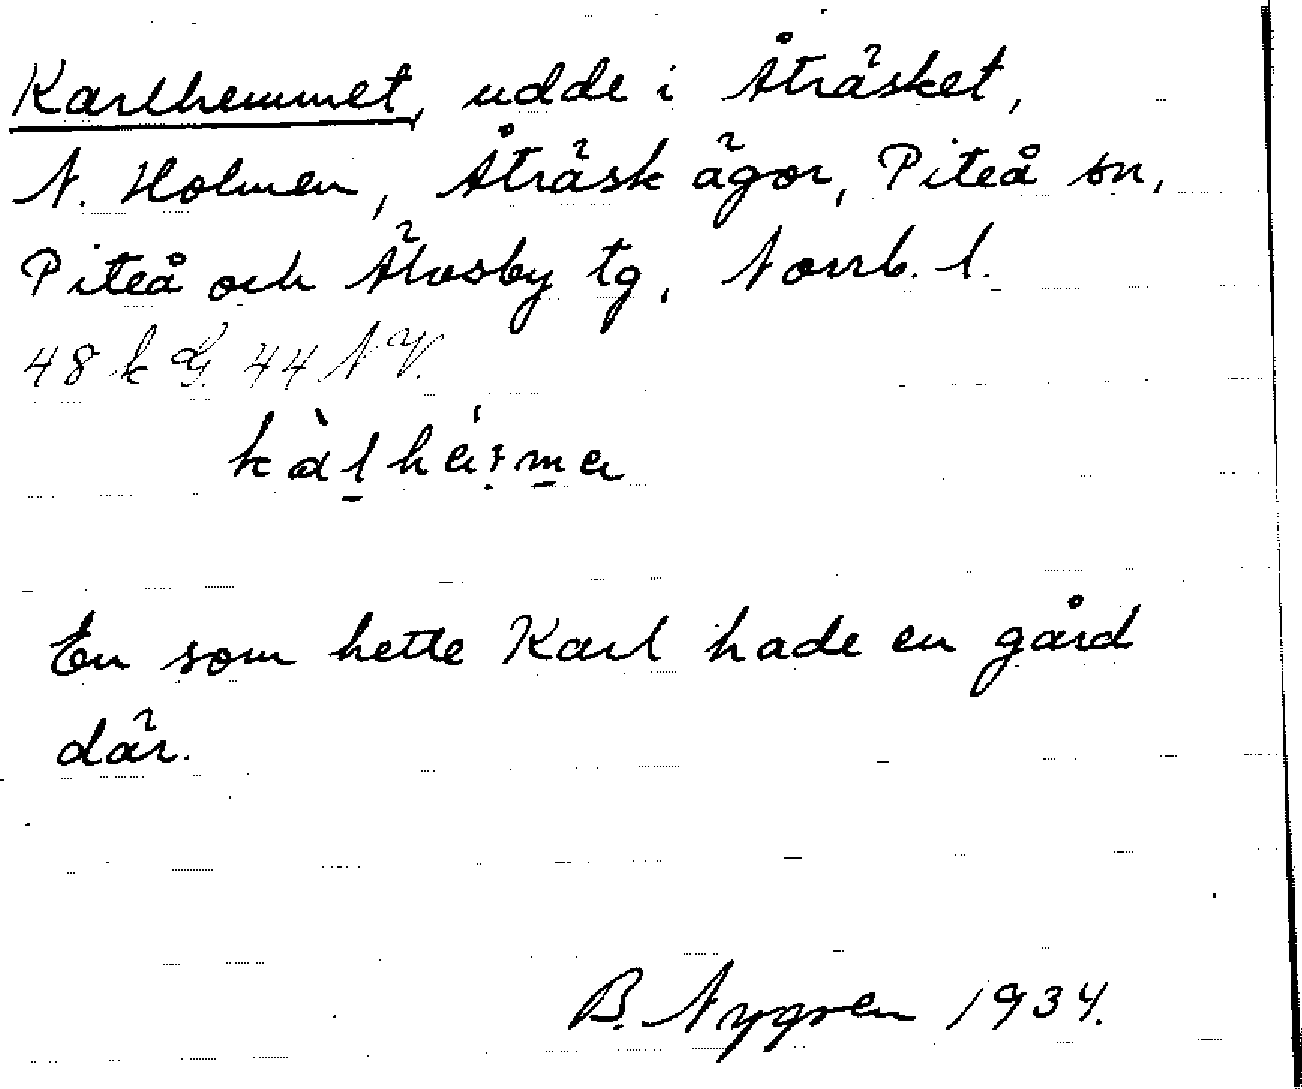 Karlhemmet, udde i Åträsket,
N. Holmen, Åträsk ägor, Piteå sn,
Piteå och Älvsby tg, Norrb. l.
48 k G. 44 N V.
En som hette Karl hade en gård
där.
B. Nygren 1934.